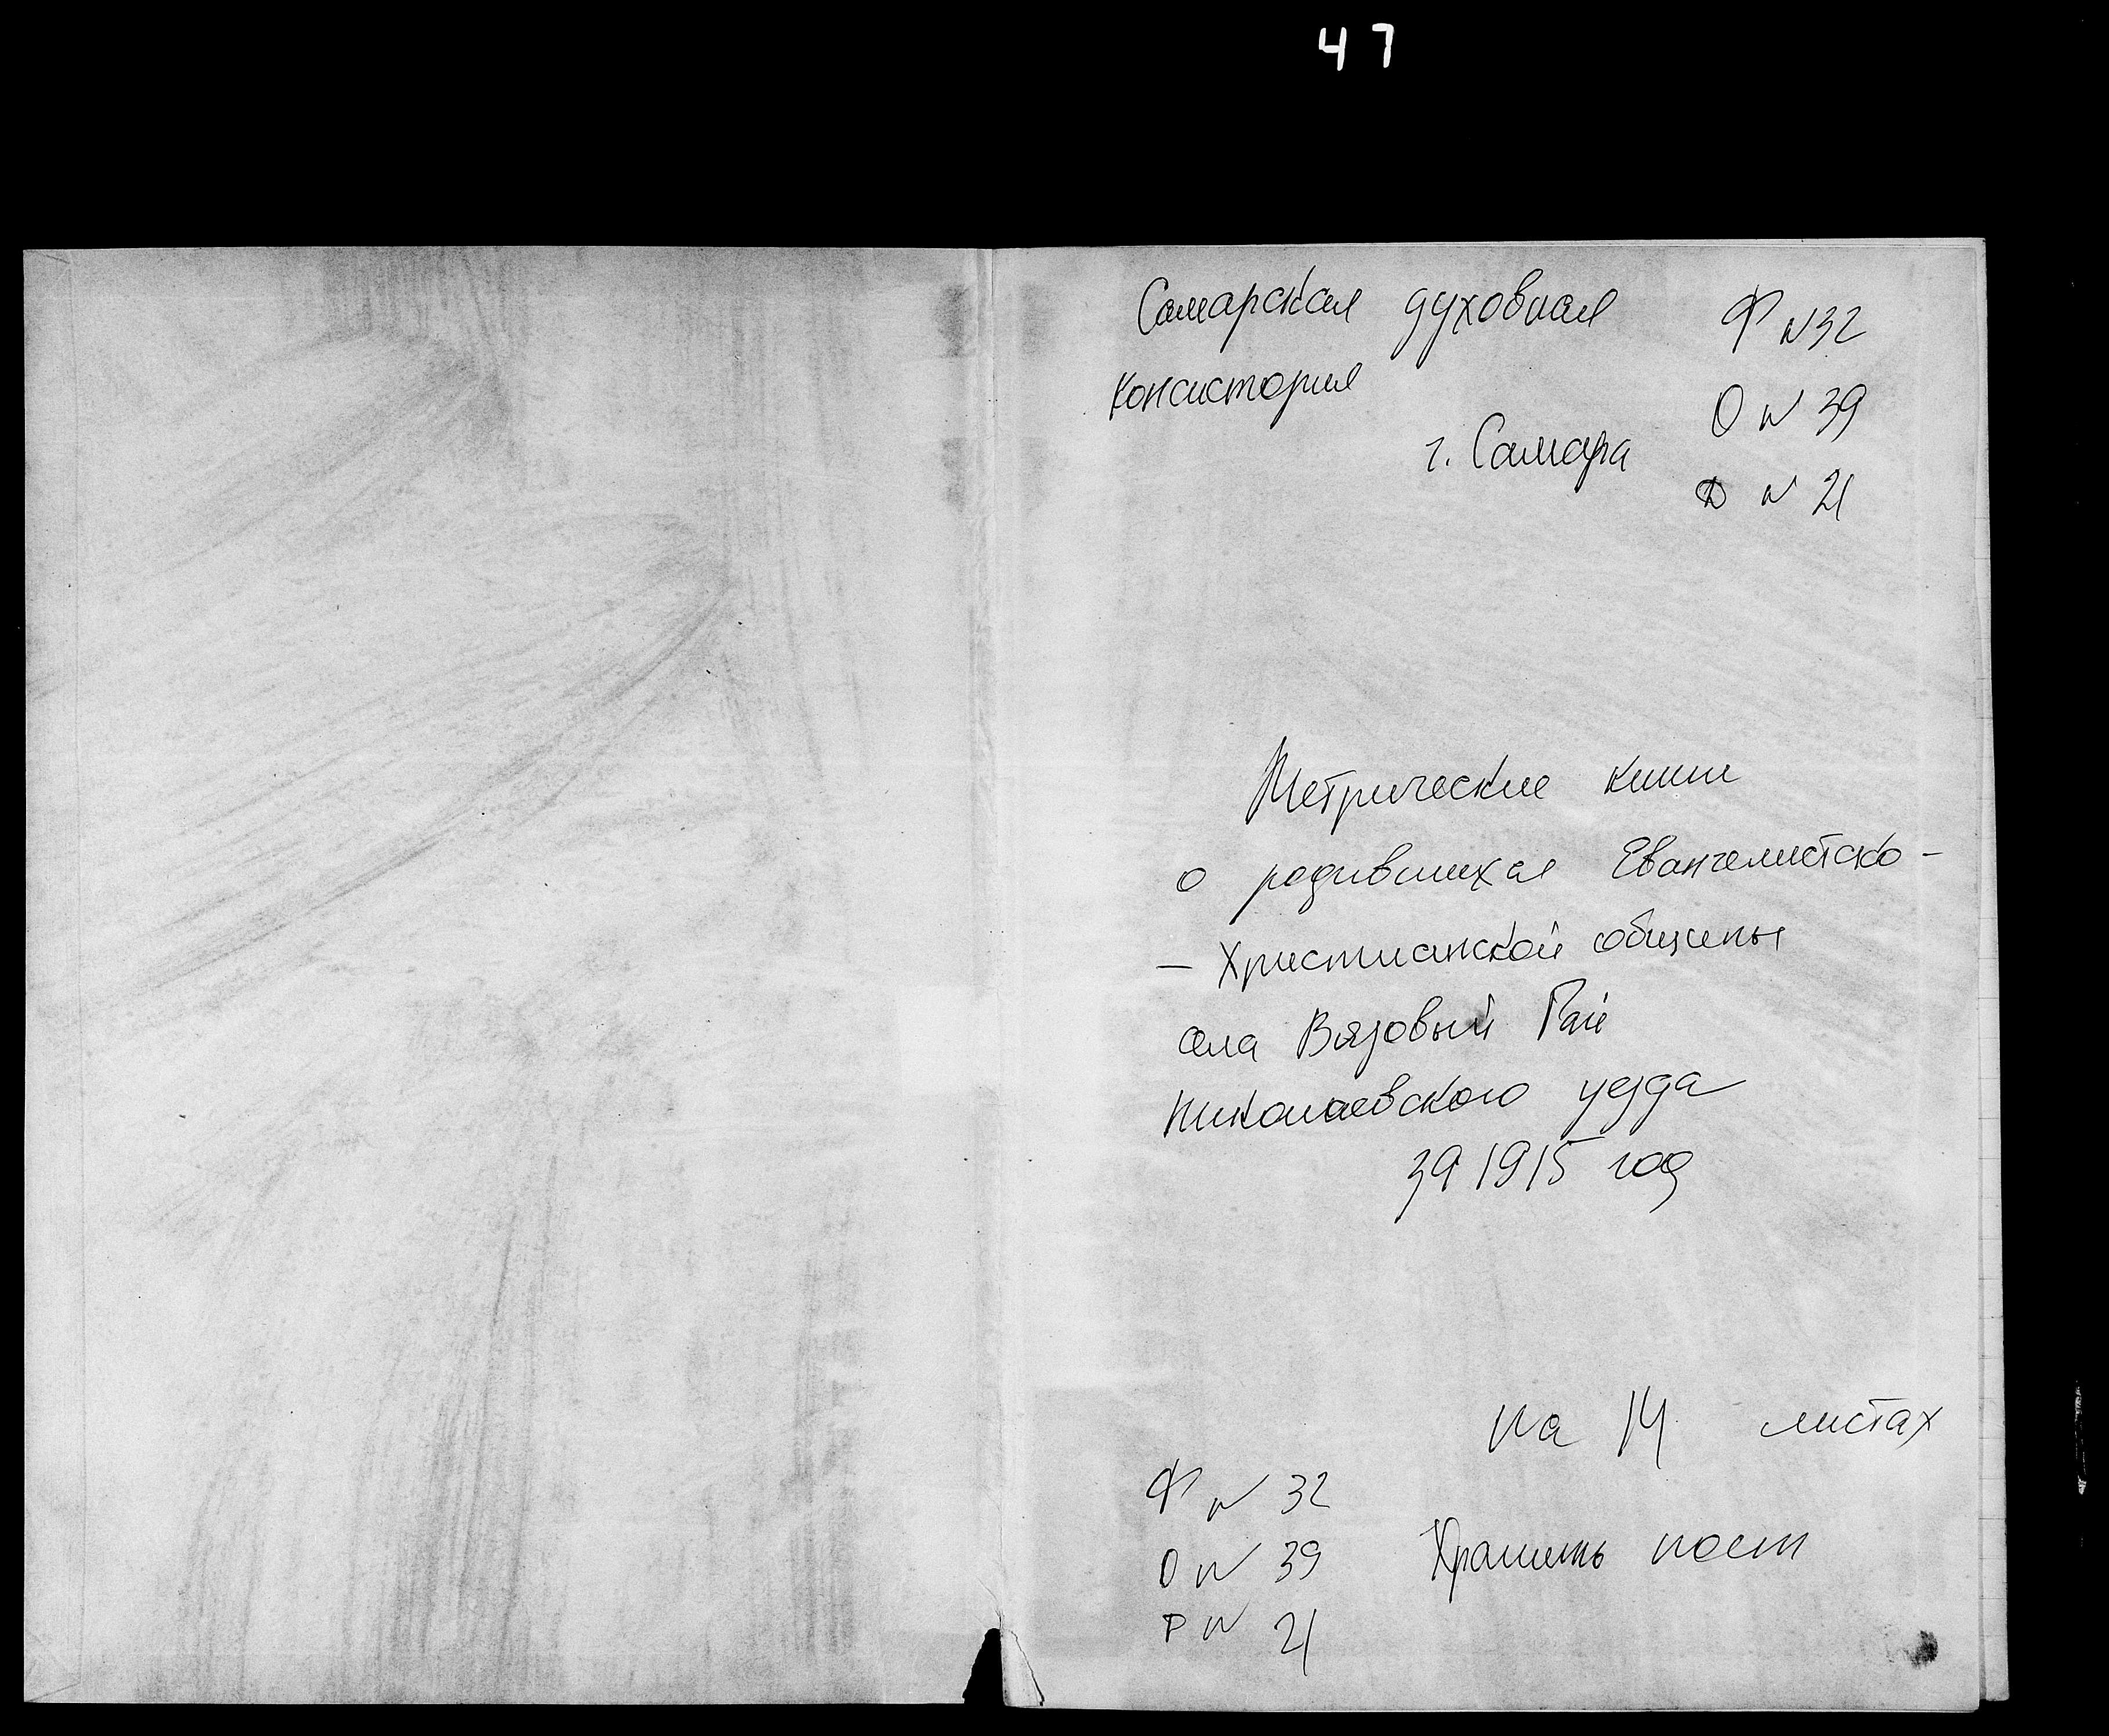 47
Самарская духовная Ф N32
консистория
О N 39
г. Самара
Д N 21
Метрические книги
о родившихся Евангелистско-
- Христианской общены
села Вязовый Гай
Николаевского уезда
за 1915 год
на 14 листах
Ф N 32
О N 39 Хранить пост
Д N 21